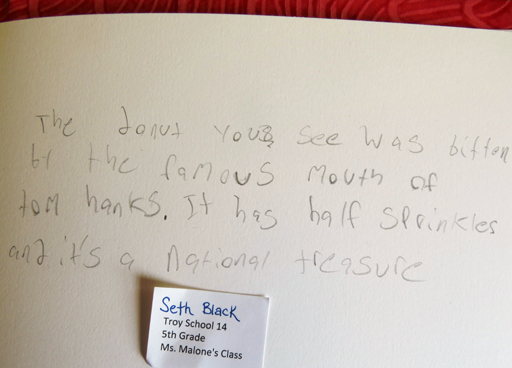 The donut you see was bitten
by the famous mouth of
tom hanks. It has half sprinkles
and it's a national treasure
Seth Black
Troy School 14
5th Grade
Ms. Malone's Class